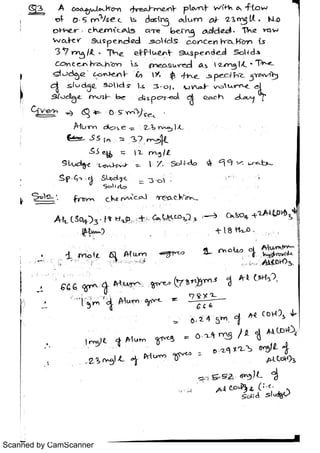 Q3 A coagulation treatment plant with a flow
of 0.5 m³/sec is dosing alum at 23mg/L. No
other chemicals are being added. The raw
water suspended solids concentration is
37 mg/L. The effluent suspended solids
concentration is measured as 12mg/L. The
sludge content is 1% & the specific gravity
of sludge solids is 3.01. What volume of
sludge must be disposed of each day?
Given ⇒ Q = 0.5 m³/sec,
Alum dose = 23 mg/L
SS in = 37 mg/L
SS eff = 12 mg/L
Sludge content = 1% Solids & 99%
Sp. Gr. of Sludge Solids = 3.01
Soln: from chemical reaction,
Al₂(SO₄)₃.18H₂O + Ca(HCO₃)₂ → CaSO₄ + 2Al(OH)₃↓
(Alum) + 18H₂O.
∴ 1 mole of Alum 2 moles of Aluminium hydroxide
Al(OH)₃
∴ 666 gm of Alum gives (78x2)gms of Al(OH)₃,
∴ 1gm of Alum give = 78x2/666
= 0.24 gm of Al(OH)₃ ↓
1mg/L of Alum gives = 0.24 mg/L of Al(OH)₃
∴ 23mg/L of Alum gives = 0.24x23 mg/L of
Al(OH)₃
= 5.52 mg/L of
Al(OH)₃ (i.e.
Solid Sludge)
Scanned by CamScanner